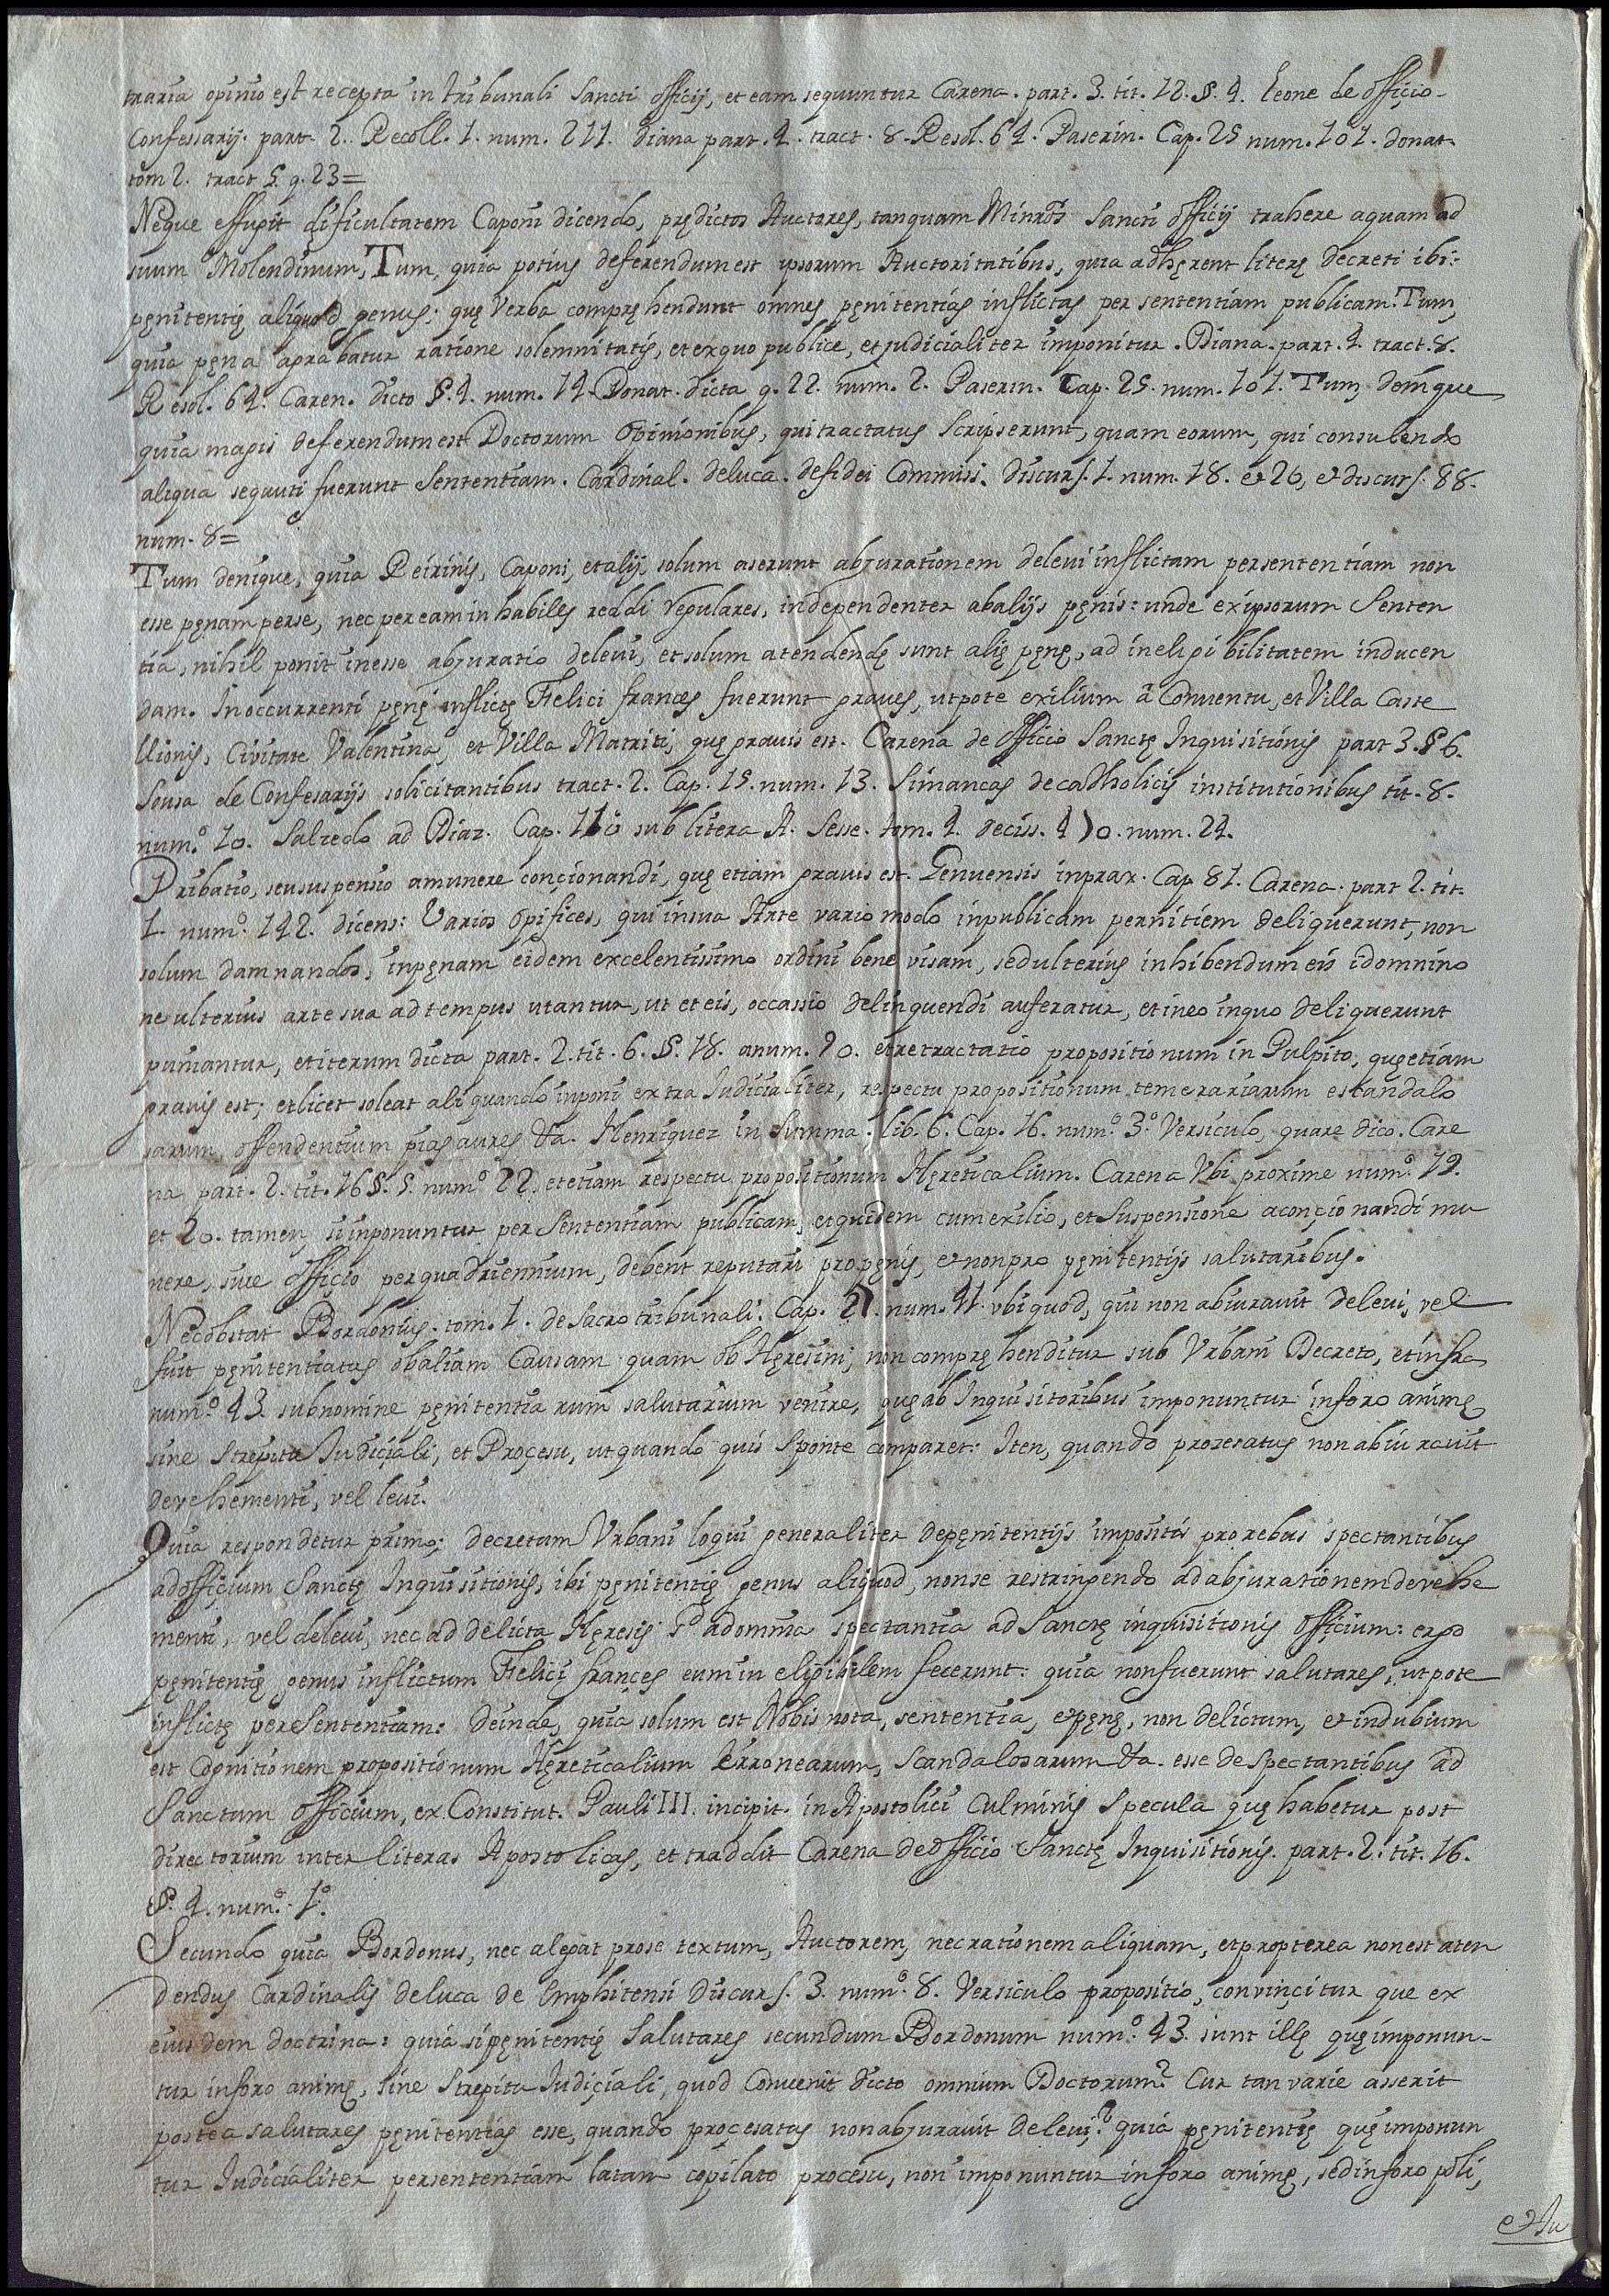 traria opinio est recepta in tribunali Sancti officij, et eam sequuntur Carena. part. 3. tit. 12. §. 4. Leone de officio
Confessarij. part. 2. Recoll. 1. num. 211. Diana part. 4. tract. 8. Resol. 64. Paserin. Cap. 25 num. 101. donat
tom 2. tract 5. q. 23=
Neque effugit dificultatem Caponi dicendo, prędictos Auctores, tanquam Minros Sancti officij trahere aquam ad
suum Molendinum, Tum, quia potius deferendum est ipsorum Auctoritatibus, quia adhęrent literę decreti ibi:
pęnitentię aliquod genus; quę Verba compręhendunt omnes pęnitentias inflictas per sententiam publicam. Tum,
quia pęna agrabatur ratione solemnitatis, et ex quo publice, et judicialiter imponitur. Diana. part. 4. tract. 8.
Resol. 64. Caren. dicto §. 4. num. 14. Donat. dicta q. 22. num. 2. Paserin. Cap. 25. num. 101. Tum, demque
quia magis deferendum est Doctorum Opinionibus, qui tractatus Scripserunt, quam eorum, qui consulendo
aliqua sequuti fuerunt Sententiam. Cardinal. deluca. defidei Commiss. discurs. 1. num. 18. et 20, et discurs. 88.
num. 8=
Tum denique, quia Peirinis, Caponi, et alij, solum aserunt abjurationem delevi inflictam persententiam non
esse pęnam perse, nec per eam inhabiles reddi regulares, independenter abalijs pęnis: unde ex ipsorum Senten
tia, nihil ponit inesse abjuratio delevi, et solum atendendę sunt alię pęnę, ad ineligibilitatem inducen
dam. In occurrenti pęnę inflictę Felici frances fuerunt graves, utpote exilium à Conventu, et Villa Caste
llionis, Civitate Valentina, et Villa Matriti, quę gravis est. Carena de officio Sanctę Inquisitionis part 3. § 6.
Sousa de Confesarijs solicitantibus tract. 2. Cap. 15. num. 13. Simancas decadholicis institutionibus tit. 8.
num.º 10. Salzedo ad Diaz. Cap. 110 sub litera A. Sesse. tom. 4. deciss. 470. num. 24.
Pribatio, seu suspensio amunere conçionandi, quę etiam gravis est. Genuensis inprax. Cap 81. Carena. part 2. tit.
1. num.º 142. dicens: Varios opifices, qui insua Arte vario modo inpublicam pernitiem deliquerunt, non
solum damnandos, inpęnam eidem excelentissimo ordini bene visam, sedulterius inhibendum eis id omnino
ne ulterius arte sua ad tempus utantur, ut et eis, occassio delinquendi auferatur, et in eo inquo deliquerunt
puniantur, et iterum dicta part. 2. tit. 6. §. 18. anum. 90. et retractatio propositionum in Pulpito, quę etiam
gravis est; et licet soleat aliquando inponi extra Judicialiter, respectu propositionum temerariarum escandalo
sarum offendentium pias aures &a. Henriquez in Summa. lib. 6. Cap. 16. num.º 3.º Versiculo, quare dico. Care
na part. 2. tit. 16 §. 5. num.º 22. et etiam respectu propositionum Hęreticalium. Carena Vbi proxime num.º 19.
et 20. tamen, si inponuntur per Sententiam publicam, et quidem cum exilio, et Suspensione aconçionandi mu
nere, sive officio per quadriennium, debent reputari propęnis, et non pro pęnitentijs salutaribus.
Nec obstat Bordonus. tom. 1. de Sacro tribunali. Cap. 27. num. 41. vbi quod, qui non abiuravit delevi, vel
fuit pęnitentiatus ob aliam Causam quam ob Hęresim; non compręhenditur sub Vrbani Decreto, et infra
num.º 43. subnomine pęnitentiarum salutarium venire, quę ab Inquisitoribus imponuntur inforo animę
sine strepitu Judiciali, et Proçesu, ut quando quis Sponte comparet: Iten, quando prozesatus non abiuravit
devehementi, vel levi.
Quia respondetur primo; decretum Vrbani loqui generaliter depęnitentijs impositis pro rebus spectantibus
ad offiçium Sanctę Inquisitionis, ibi pęnitentię genus aliquod, non se restringendo ad abjurationem devehe
menti, vel delevi, nec ad delicta Hęresis, s.d ad omnia spectantia ad Sanctę inquisitionis Offiçium: ergo
pęnitentię genus inflictum Felici françes eum in eligibilem fecerunt: quia non fuerunt salutares, utpote
inflictę per Sententiam: deinde, quia solum est Nobis nota, sententia, et pęnę, non delictum, et indubium
est Cognitionem propositionum Hęreticalium Erronearum, Scandalosarum &a. esse de Spectantibus ad
Sanctum officium, ex Constitut. Pauli III. incipit. in Apostolici Culminis Specula quę habetur post
directorium inter literas Apostolicas, et traddit Carena de officio Sanctę Inquisitionis. part. 2. tit. 16.
§. 4. num.º 1.º
Secundo quia Bordonus, nec alegat prose textum, Auctorem, nec rationem aliquam, et propterea non est aten
dendus Cardinalis deluca de Emphitensi Discurs. 3. num.º 8. Versiculo propositio, convinçitur que ex
eiusdem doctrina: quia si pęnitentię Salutares secundum Bordonum num.º 43. sunt illę quę imponun-
tur inforo animę, sine Strepitu Judiçiali, quod Convenit dicto omnium Doctorum? Cur tan varie asserit
postea salutares pęnitentias esse, quando proçesatus non abjuravit delevi,? quia pęnitentię quę imponun
tur Judicialiter persententiam latam copilato procesu, non imponuntur inforo animę, sed inforo poli,
et Ju